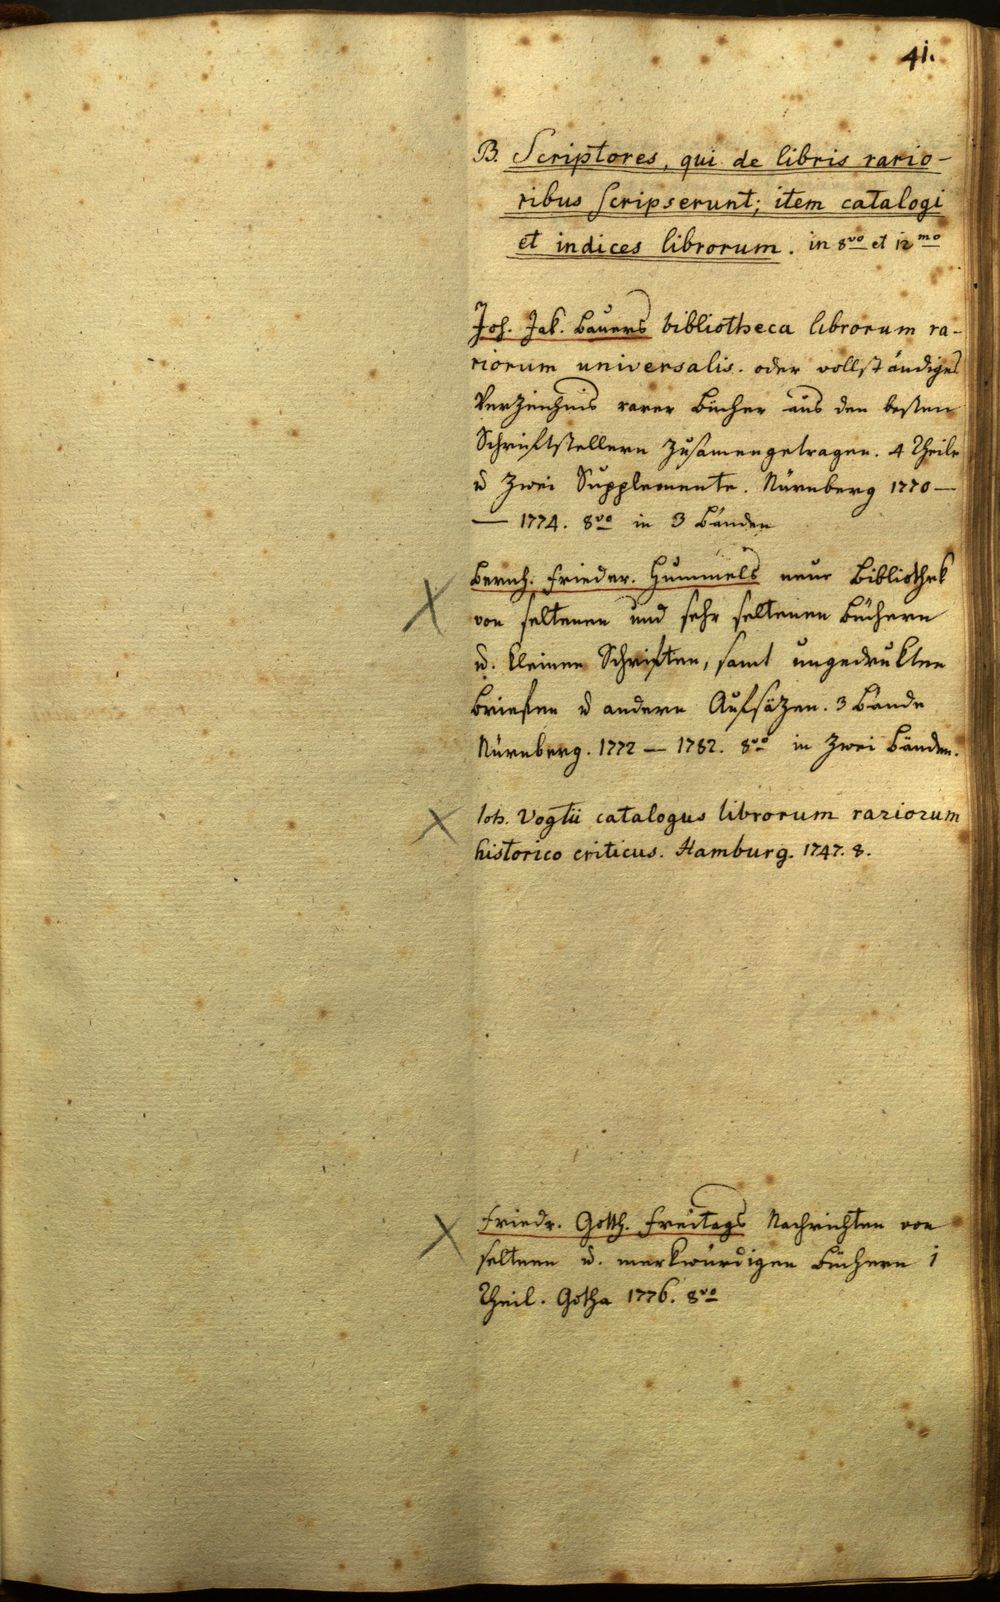 41.
B. Scriptores, qui de libris rario-
ribus scripserunt; item catalogi
et indices librorum. in 8vo et 12mo
Joh. Jak. Bauers bibliotheca librorum ra-
riorum universalis. oder vollständiges
Verzeichnis rarer Bücher aus den besten
Schriftstellern zusamengetragen. 4 Theile
u zwei Supplemente. Nürnberg 1770 —
— 1774. 8vo in 3 Bänden
X Bernh. Frieder. Hummels neue Bibliothek
von seltenen und sehr seltenen Büchern
u. kleinen Schriften, samt ungedrukten
Briefen u andern Aufsäzen. 3 Bände
Nürnberg. 1772 — 1782. 8vo in zwei Bänden.
X Ioh. Vogtii catalogus librorum rariorum
historico criticus. Hamburg. 1747. 8.
X Friedr. Gotth. Freitags Nachrichten von
seltnen u. merkwürdigen Büchern 1
Theil. Gotha 1776. 8vo